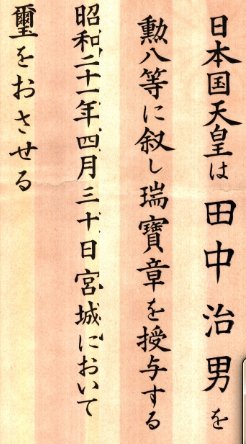 日本国天皇は田中治男を
勲八等に叙し瑞寶章を授与する
昭和二十一年四月三十日宮城において
璽をおさせる